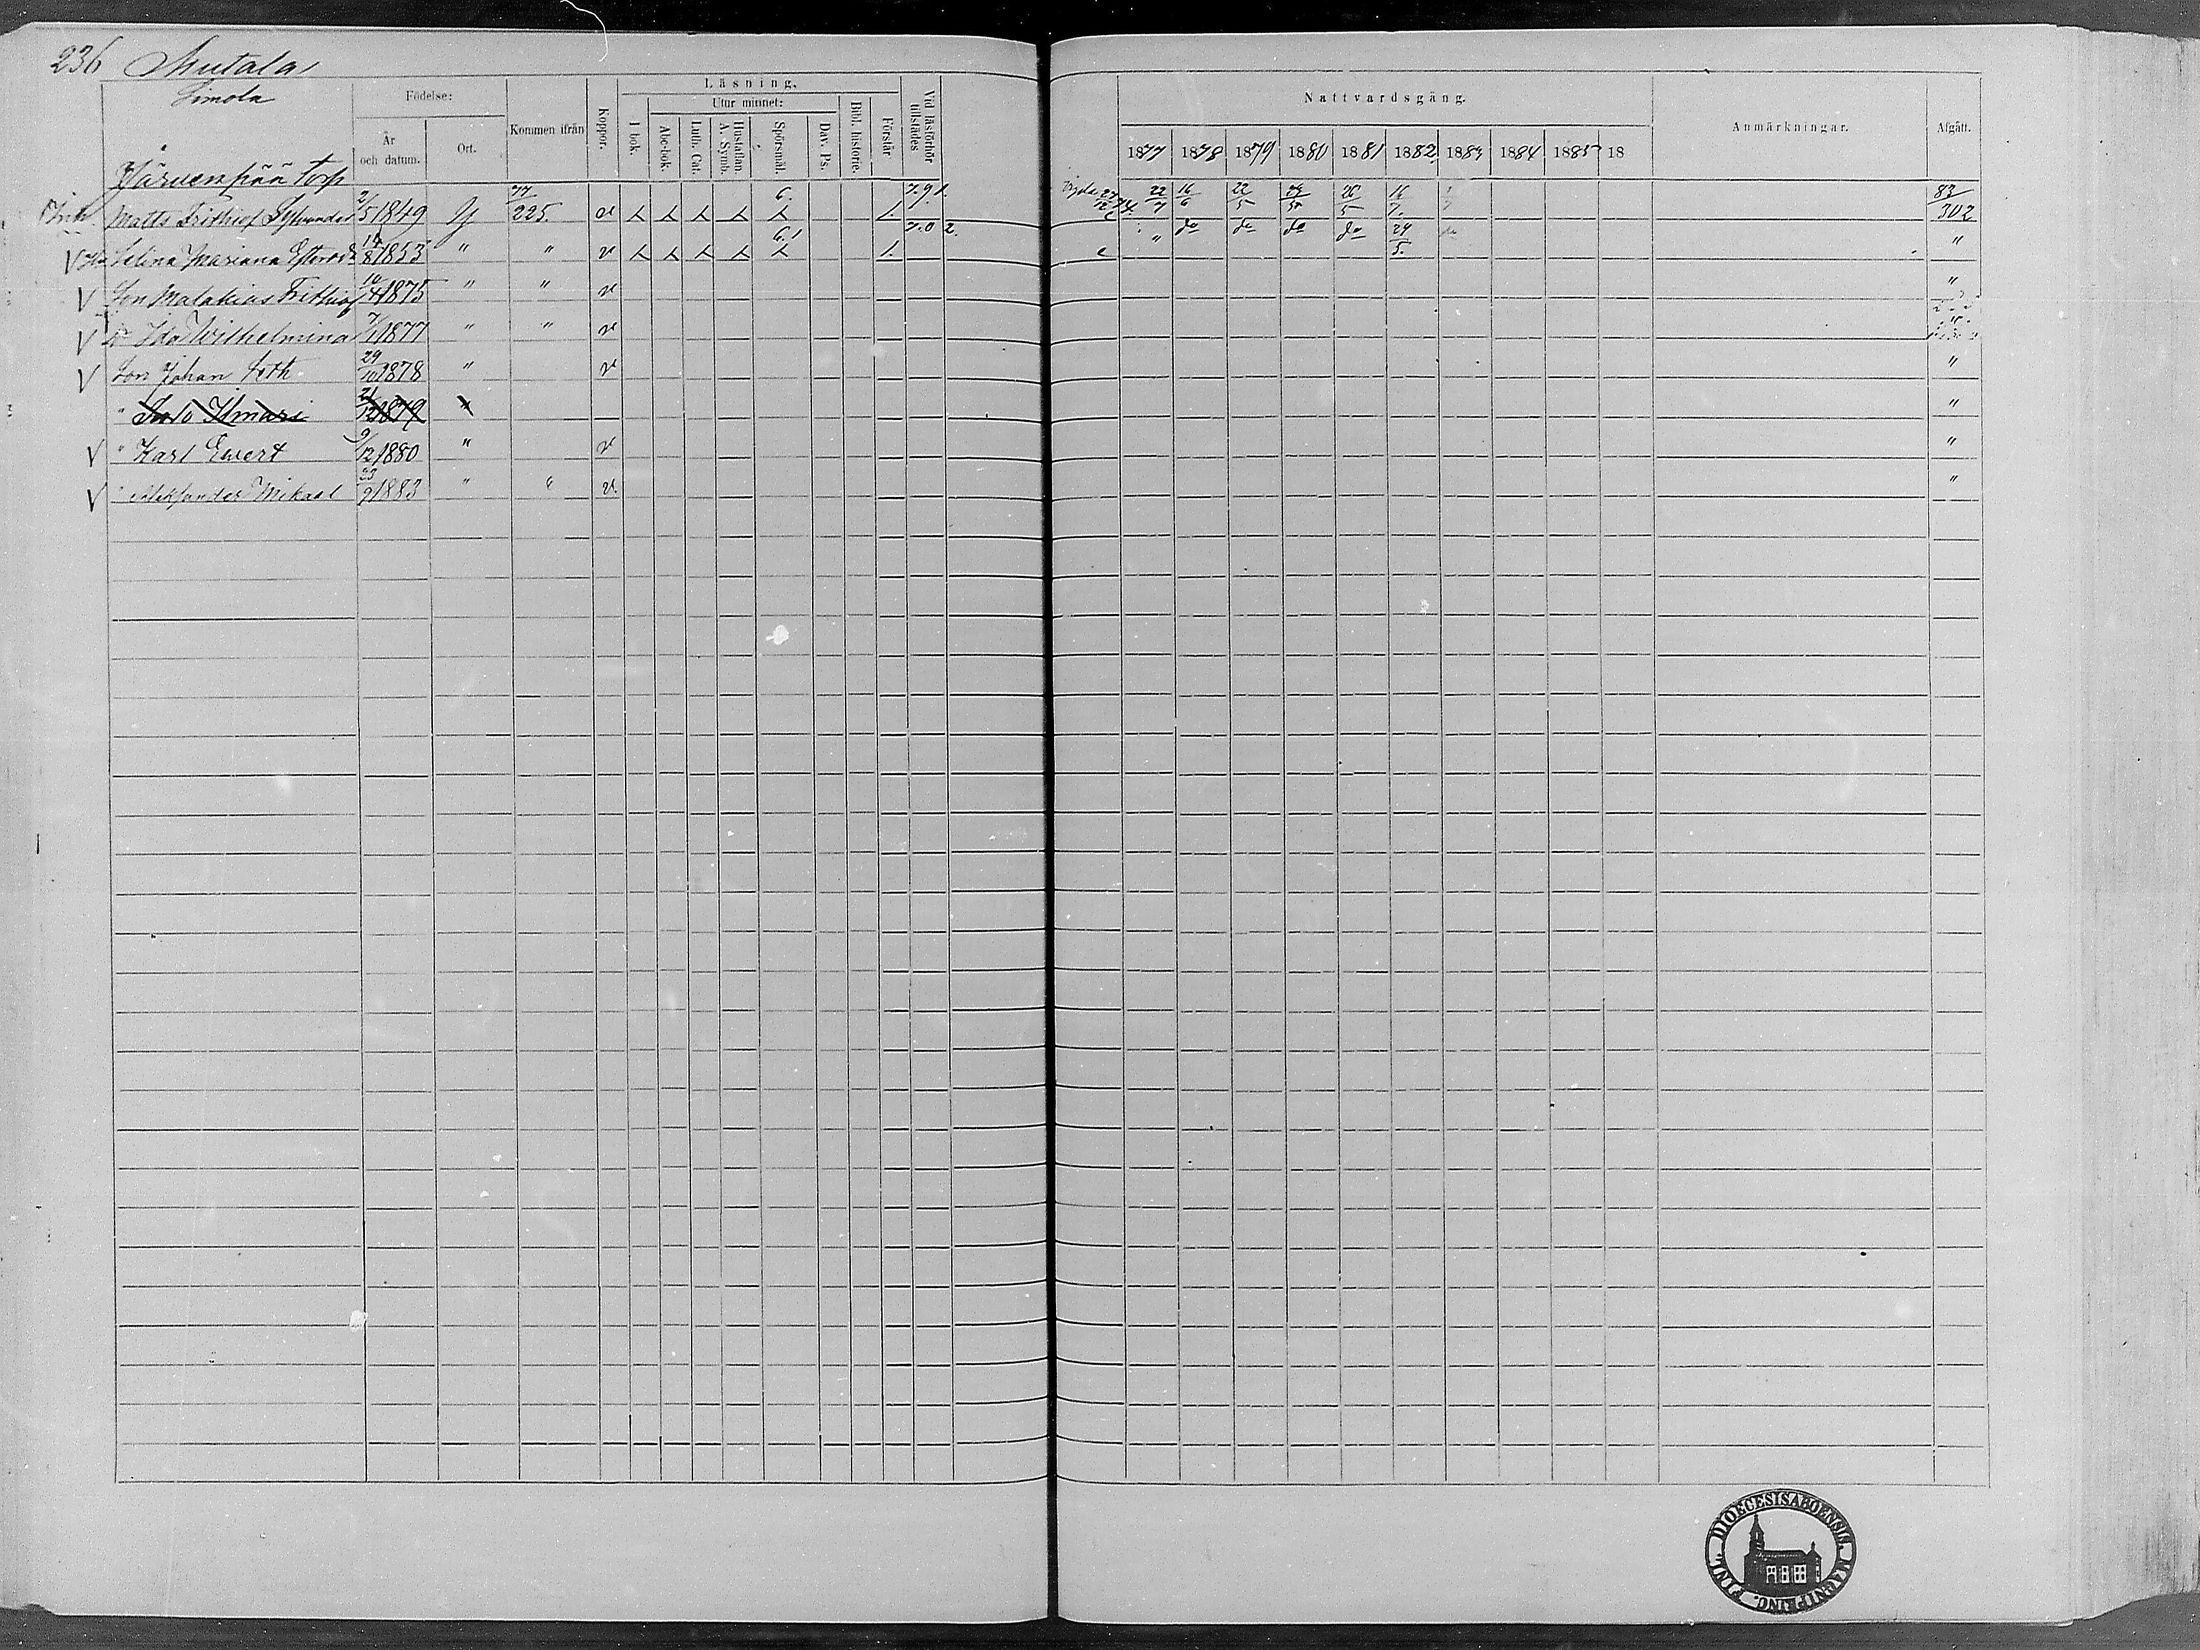 236 Mutala
Simola
Födelse:
År och datum.
Ort.
Kommen ifrån
Koppor.
Läsning.
I bok.
Utur minnet:
Abc-bok.
Luth. Cat.
Hustaflan. A. Symb.
Spörsmål.
Dav. Ps.
Bibl. historie.
Förstår
Vid läsförhör tillstädes
Nattvardsgång.
1877 1878 1879 1880 1881 1882 1883 1884 1885 18
Anmärkningar.
Afgått.
Järvenpää torp
Matts Frithiof 2/5 1849 77/225. v 6. 7.9.1. 22/7 16/6 22/5 26/5 16/7. 83/302
Selina Mariana 14/8 1853 " " v 6.1 7.0 2. " do do do do 24/5. "
Son Malakias Frithiof 10/4 1875 " " v "
Dr Ida Wilhelmina 7/1 1877 " " v "
Son Johan Seth 29/10 1878 " v "
" Ilmari 21/12 1879 " "
" Karl Ewert 9/12 1880 " v "
" Aleksander Mikael 23/9 1883 " " v. "
DIOECESIS ABOENSIS. MAGNI PRINC. FINL.